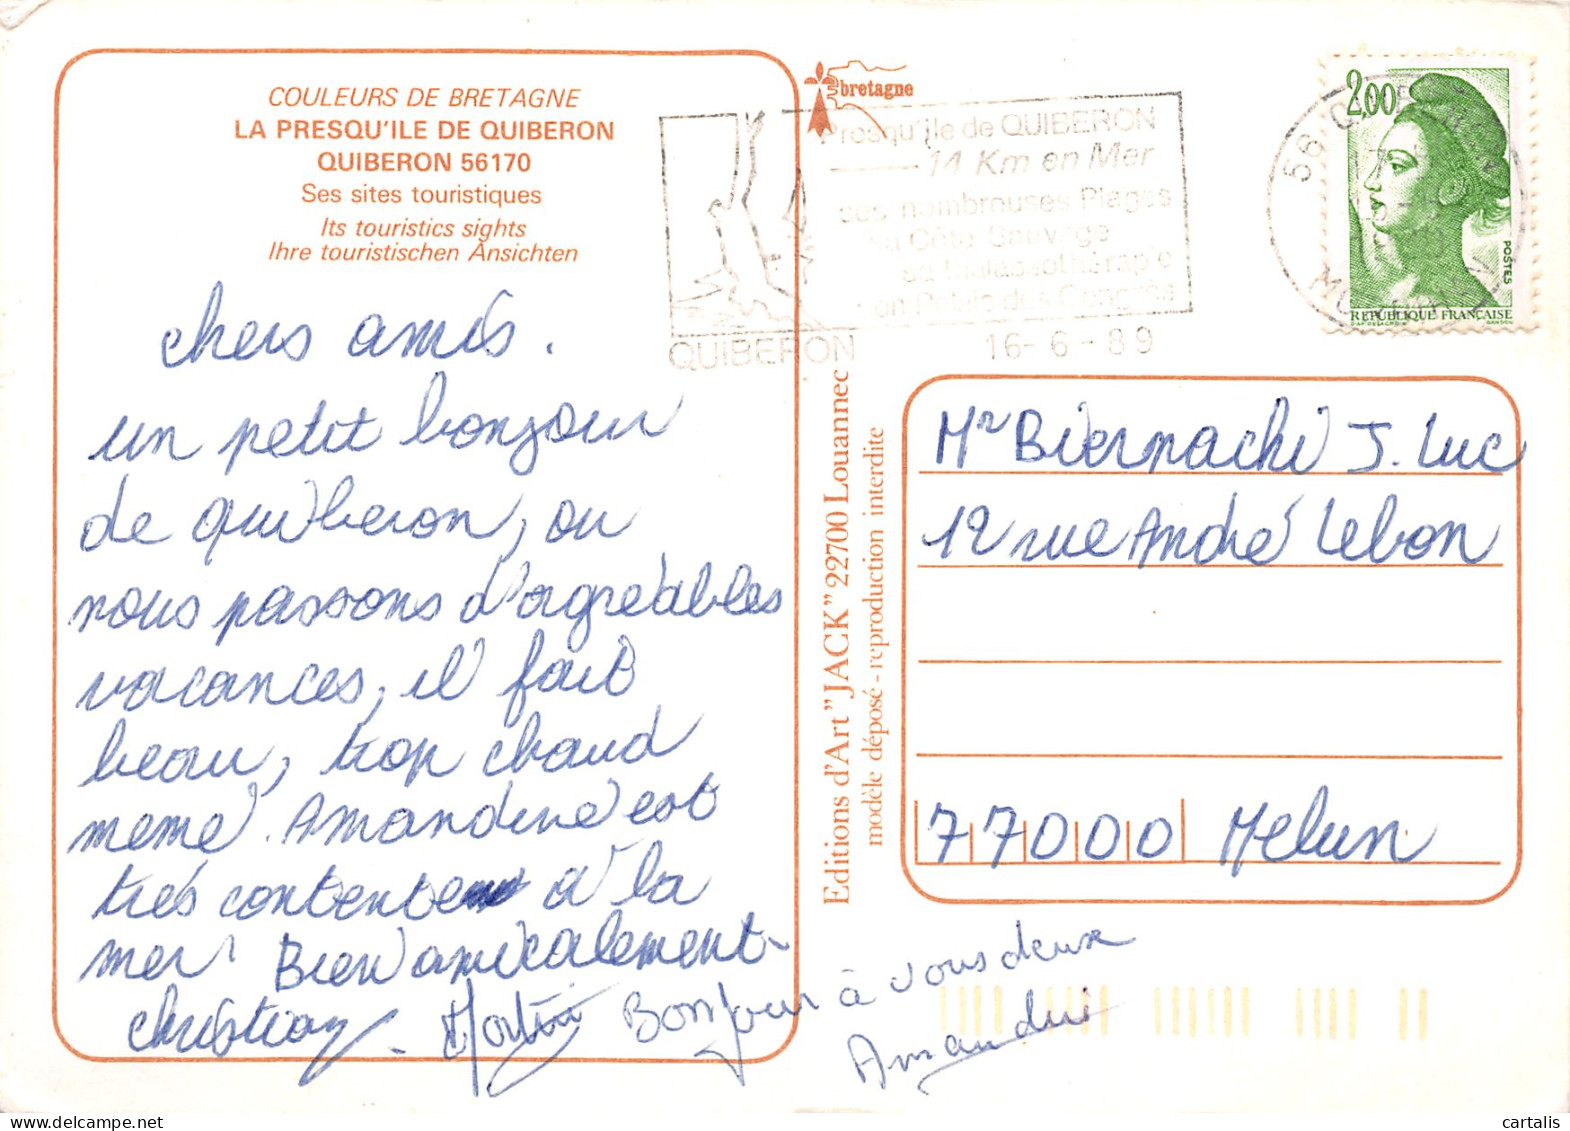 COULEURS DE BRETAGNE
LA PRESQU'ILE DE QUIBERON
QUIBERON 56170
Ses sites touristiques
Its touristics sights
Ihre touristischen Ansichten
chers amis.
un petit bonjour
de quiberon, ou
nous passons d'agréables
vacances, il fait
beau, trop chaud
meme. Amandine est
très contente à la
mer. Bien amicalement.
Christian
Bonjour à vous deux
Amandine
bretagne
Presqu'île de QUIBERON
14 Km en Mer
ses nombreuses Plages
sa Côte Sauvage
sa thalassothérapie
son Palais des Congrès
QUIBERON
16-6-89
2,00
POSTES
REPUBLIQUE FRANÇAISE
56 QUIBERON
Editions d'Art "JACK" 22700 Louannec
modèle déposé - reproduction interdite
Mr Biernacki J. Luc
12 rue André Lebon
77000 Melun
cartalis